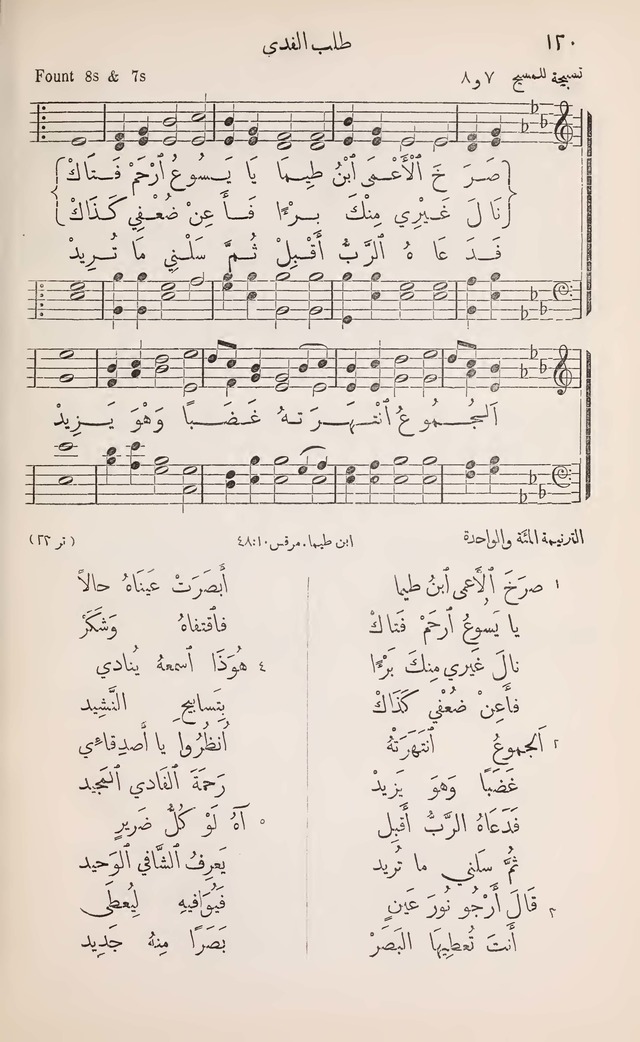 ١٢٠
طلب الفدي
تسبيحة للمسيح ٧ و ٨
Fount 8s & 7s
صَرَخَ ٱلْأَعْمَى ٱبْنُ طيمَا يَا يَسُوعُ ٱرْحَمْ فَتَاكْ
نَالَ غَيْرِي مِنْكَ بُرْءًا فَأَعِنْ ضُعْفِي كَذَاكْ
فَدَعَاهُ ٱلرَّبُّ أَقْبِلْ ثُمَّ سَلْنِي مَا تُرِيدْ
اَلجُمُوعُ ٱنْتَهَرَتهُ غَضَبًا وَهْوَ يَزِيدْ
الترنيمة المئة والواحدة
ابن طيما. مرقس ١٠:٤٨
(تر ٢٢)
١ صرَخَ ٱلْأَعمى ٱبنُ طيما
يا يَسُوعُ ٱرْحَمْ فَتاكْ
نالَ غَيري مِنكَ بُرْءًا
فأَعِنْ ضُعْفِي كَذَاكْ
٢ اَلجموعُ ٱنتَهَرَتْهُ
غَضَبًا وَهْوَ يَزِيدْ
فَدَعَاهُ الرَّبُّ أَقبِل
ثُمَّ سَلني ما تُريد
٣ قَالَ أَرْجُو نُورَ عَينٍ
أَنتَ تُعطِيهَا البَصَرْ
أَبصَرَتْ عَينَاهُ حالاً
فاقتفاهُ وَشَكَرْ
٤ هُوَذَا ٱسمعهُ يُنادي
بِتَسابيحِ النَّشِيد
اُنظُرُوا يا أَصدِقاءِي
رَحمَةَ ٱلفَادي ٱلمَجيد
٥ آهُ لَوْ كُلُّ ضَريرٍ
يَعرِفُ ٱلشَّافي ٱلوَحيد
فَيُوَافِيهِ لِيُعطَى
بَصَرًا مِنهُ جَديد